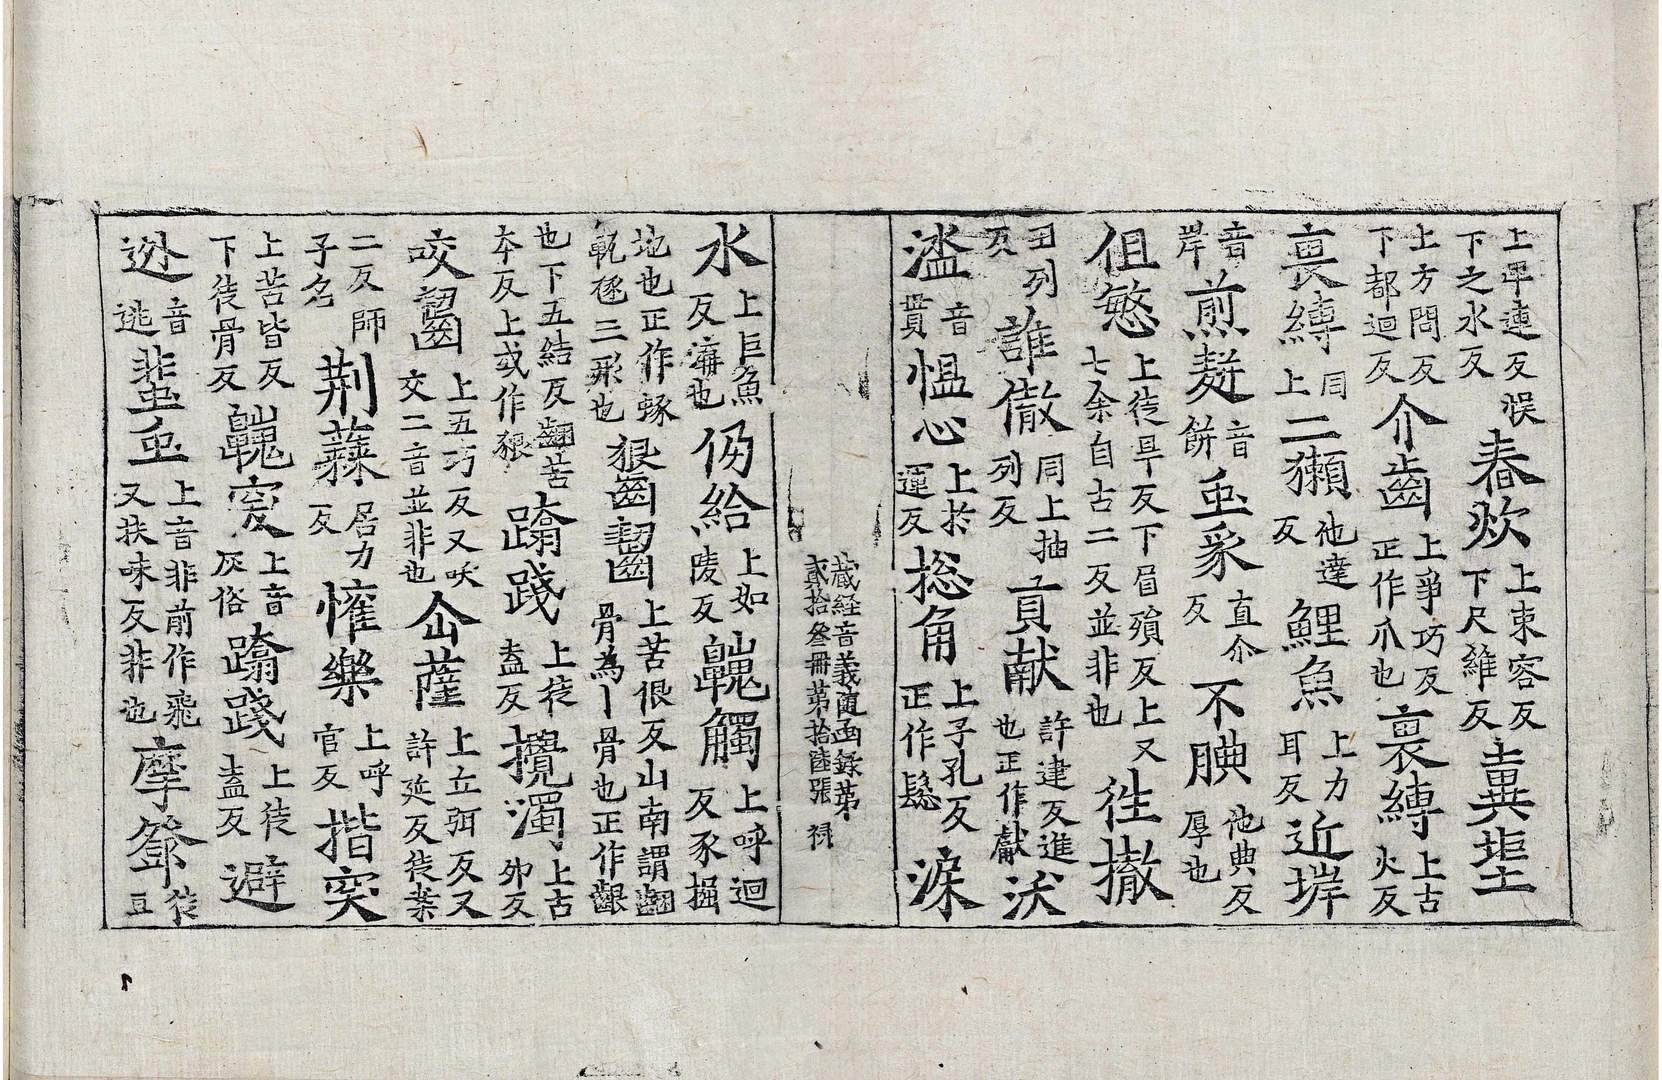 上平連反悞下之水反舂炊上束容反下尺維反糞埿
上方問反下都迴反介齒上爭巧反正作爪也裏縛上古火反
裏縛同上二獺他達反鯉魚上力耳反近垾
音岸煎麨音餅䖝豸直尒反不腆他典反厚也
伹慜上徒旱反下眉殞反上又七余自古二反並非也徃撤
丑列反誰儆同上抽列反貢献許建反進也正作獻洑
滥音貫愠心上於運反捴角上子孔反正作鬆㴱
蔵経音義随函録第貳拾叄冊第拾陸張 禄
水上巨魚反㵗也仍給上如陵反䶩觸上呼迴反豕掘
地也正作㺒𧱓三形也狠齒齧齒上苦佷反山南謂齧骨為丨骨也正作齦
也下五結反齧苦夲反上或作狠蹹踐上徒盍反攪濁上古夘反
咬齧上五巧反又咬交二音並非也仚薩上立弭反又許延反徒葉
二反師子名荆蕀居力反懽樂上呼官反揩突
上苦皆反下徒骨反䶩突上音灰俗蹹踐上徒盍反避
迯音逃蜚䖝上音非前作飛又扶味反非也摩㽅徒豆